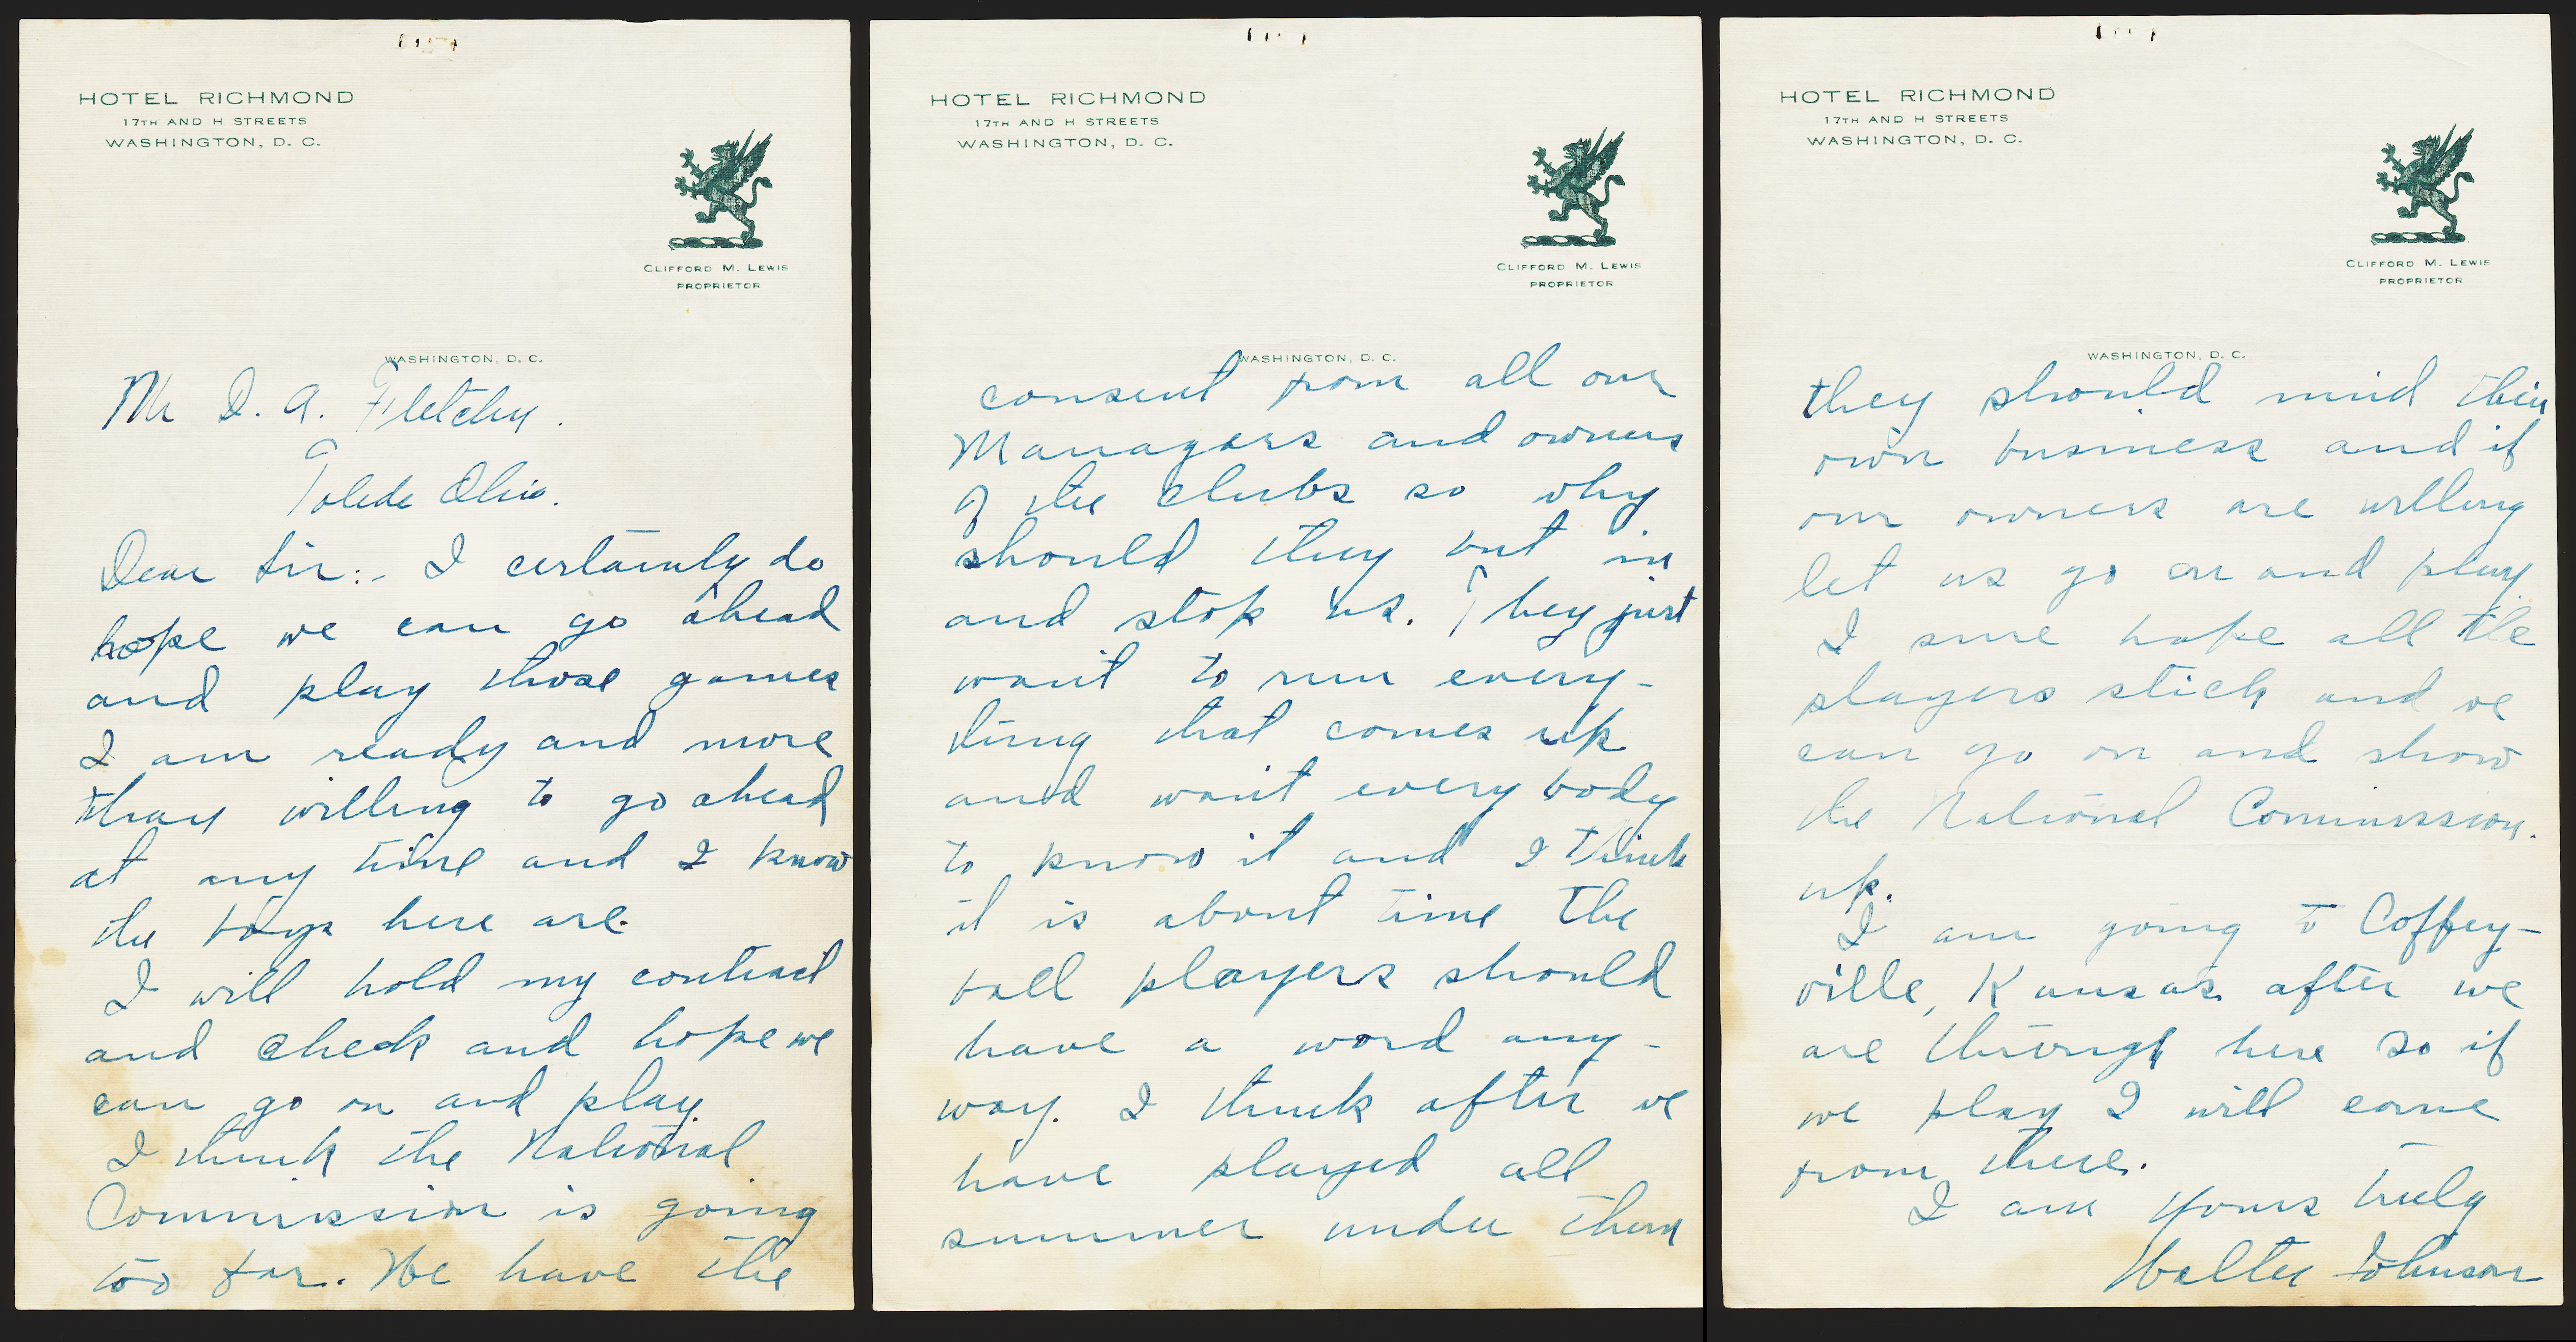 HOTEL RICHMOND
17TH AND H STREETS
WASHINGTON, D. C.
CLIFFORD M. LEWIS
PROPRIETOR
WASHINGTON, D. C.
Mr D. A. Fletcher.
Toledo Ohio.
Dear Sir:- I certainly do
hope we can go ahead
and play those games
I am ready and more
than willing to go ahead
at any time and I know
the boys here are.
I will hold my contract
and check and hope we
can go on and play.
I think the National
Commission is going
too far. We have the
HOTEL RICHMOND
17TH AND H STREETS
WASHINGTON, D. C.
CLIFFORD M. LEWIS
PROPRIETOR
WASHINGTON, D. C.
consent from all our
Managers and owners
of the clubs so why
should they but in
and stop us. They just
want to run every-
thing that comes up
and want every body
to know it and I think
it is about time the
ball players should
have a word any-
way. I think after we
have played all
summer under them
HOTEL RICHMOND
17TH AND H STREETS
WASHINGTON, D. C.
CLIFFORD M. LEWIS
PROPRIETOR
WASHINGTON, D. C.
they should mind their
own business and if
our owners are willing
let us go on and play.
I sure hope all the
players stick and we
can go on and show
the National Commission.
up.
I am going to Coffey-
ville, Kansas after we
are through here so if
we play I will come
from there.
I am Yours truly
Walter Johnson